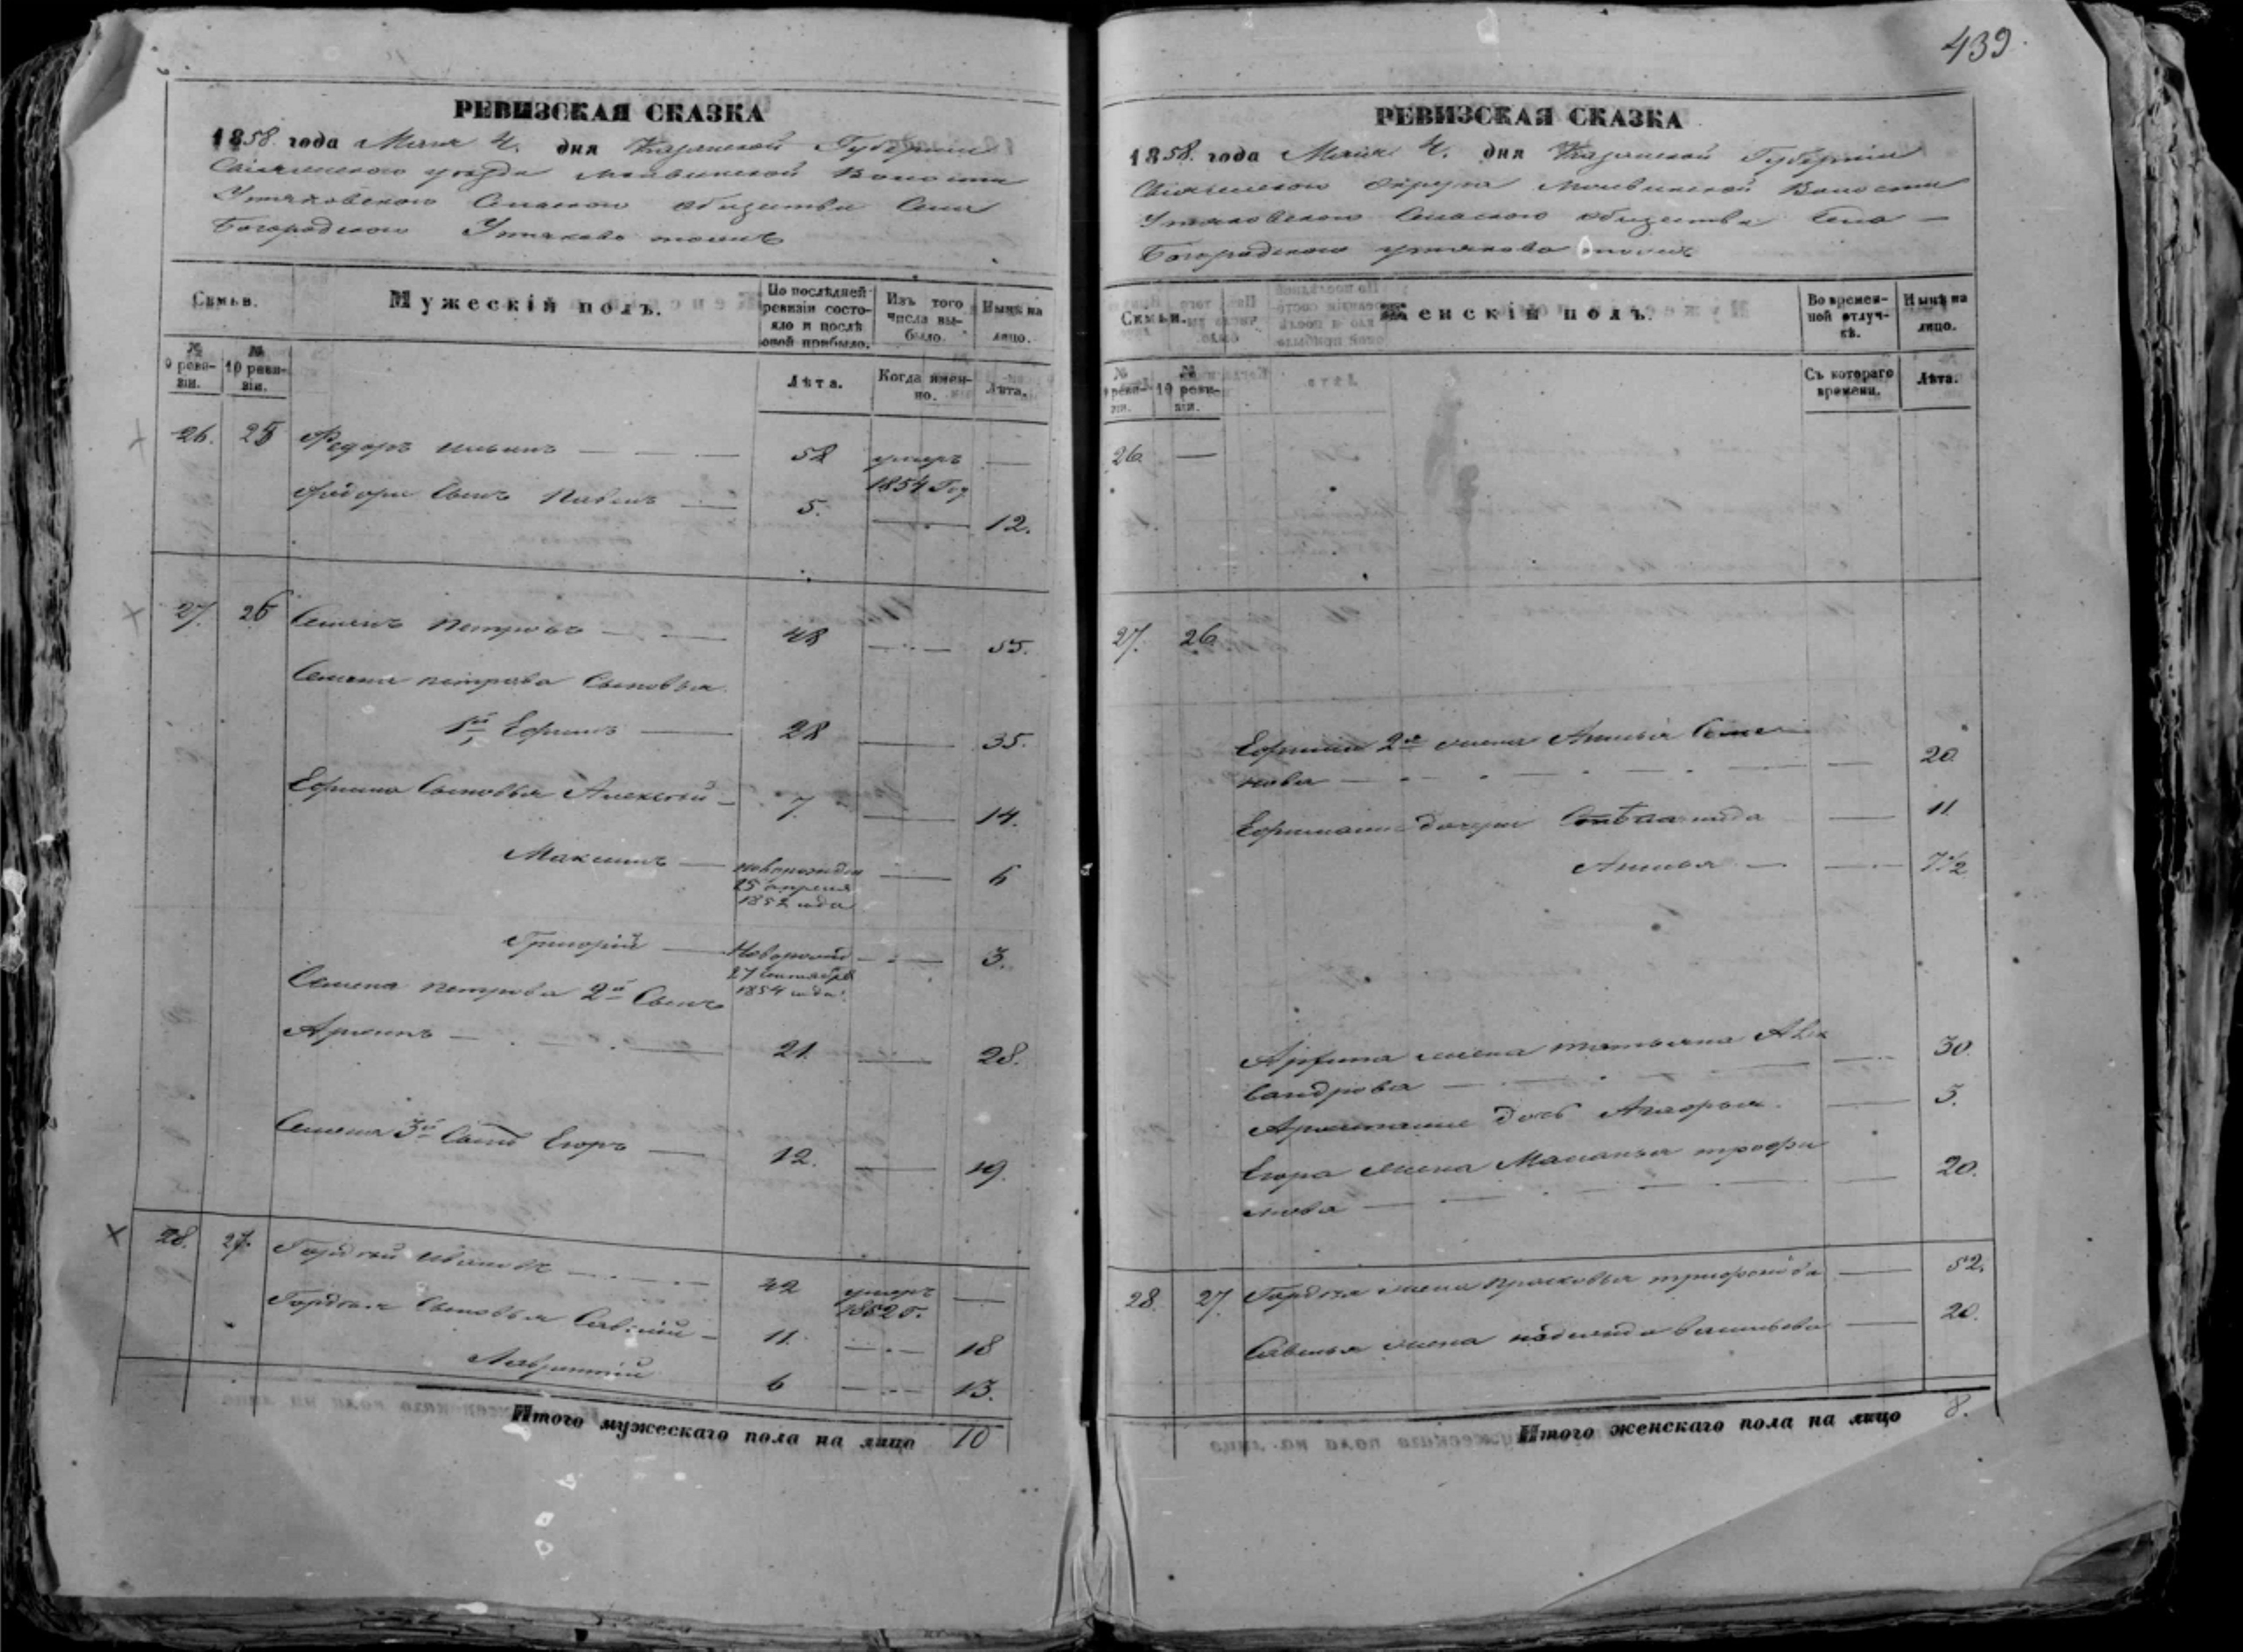 439.
РЕВИЗСКАЯ СКАЗКА
1858. года Мая 4. дня Казанской Губернии
уезда Волости
Утяковского общества Села
Богородского Утяково тожъ
Семьи.
Мужескій полъ.
По послѣдней ревизіи состояло и послѣ оной прибыло.
Изъ того числа выбыло.
Нынѣ на лицо.
№ 9 ревизіи.
№ 10 ревизіи.
Лѣта.
Когда именно.
Лѣта.
26. 25 Федоръ Ильинъ — 58 умеръ 1854 Год —
Федора Сынъ Павелъ — 5. — 12.
27. 26 Семенъ Петровъ — 48 — 55.
Семена Петрова Сыновья
1й Ефимъ — 28 — 35.
Ефима Сыновья Алексей — 7. — 14.
Максимъ — новорожден 25 апреля 1852 года — 6
Григорій — Новорожд 27 Сентября 1854 года — 3.
Семена Петрова 2й Сынъ
— 21 — 28.
Семена 3й Сынъ Егоръ — 12. — 19.
28. 27. Гордей Ивановъ — 42 умеръ 1852 г. —
Гордея Сыновья Савелій — 11. — 18
Лаврентій 6 — 13.
Итого мужескаго пола на лицо 10
РЕВИЗСКАЯ СКАЗКА
1858. года Мая 4. дня Казанской Губерніи
округа Волости
Утяковского общества Села
Богородского Утяково тожъ
Семьи.
Женскій полъ.
Во временной отлучкѣ.
Нынѣ на лицо.
№ 9 ревизіи.
№ 10 ревизіи.
Съ котораго времени.
Лѣта.
26. —
27. 26
Ефима 2я жена Анисья Семе
нова — 20
дочери — 11
Анисья — 7 1/2
жена Татьяна Алек
сандрова — 30.
дочь — 5.
Егора жена Маланья Трофи
мова — 20.
28. 27. Гордея жена Прасковья — 52.
Савелья жена Надежда Васильева — 20.
Итого женскаго пола на лицо 8.